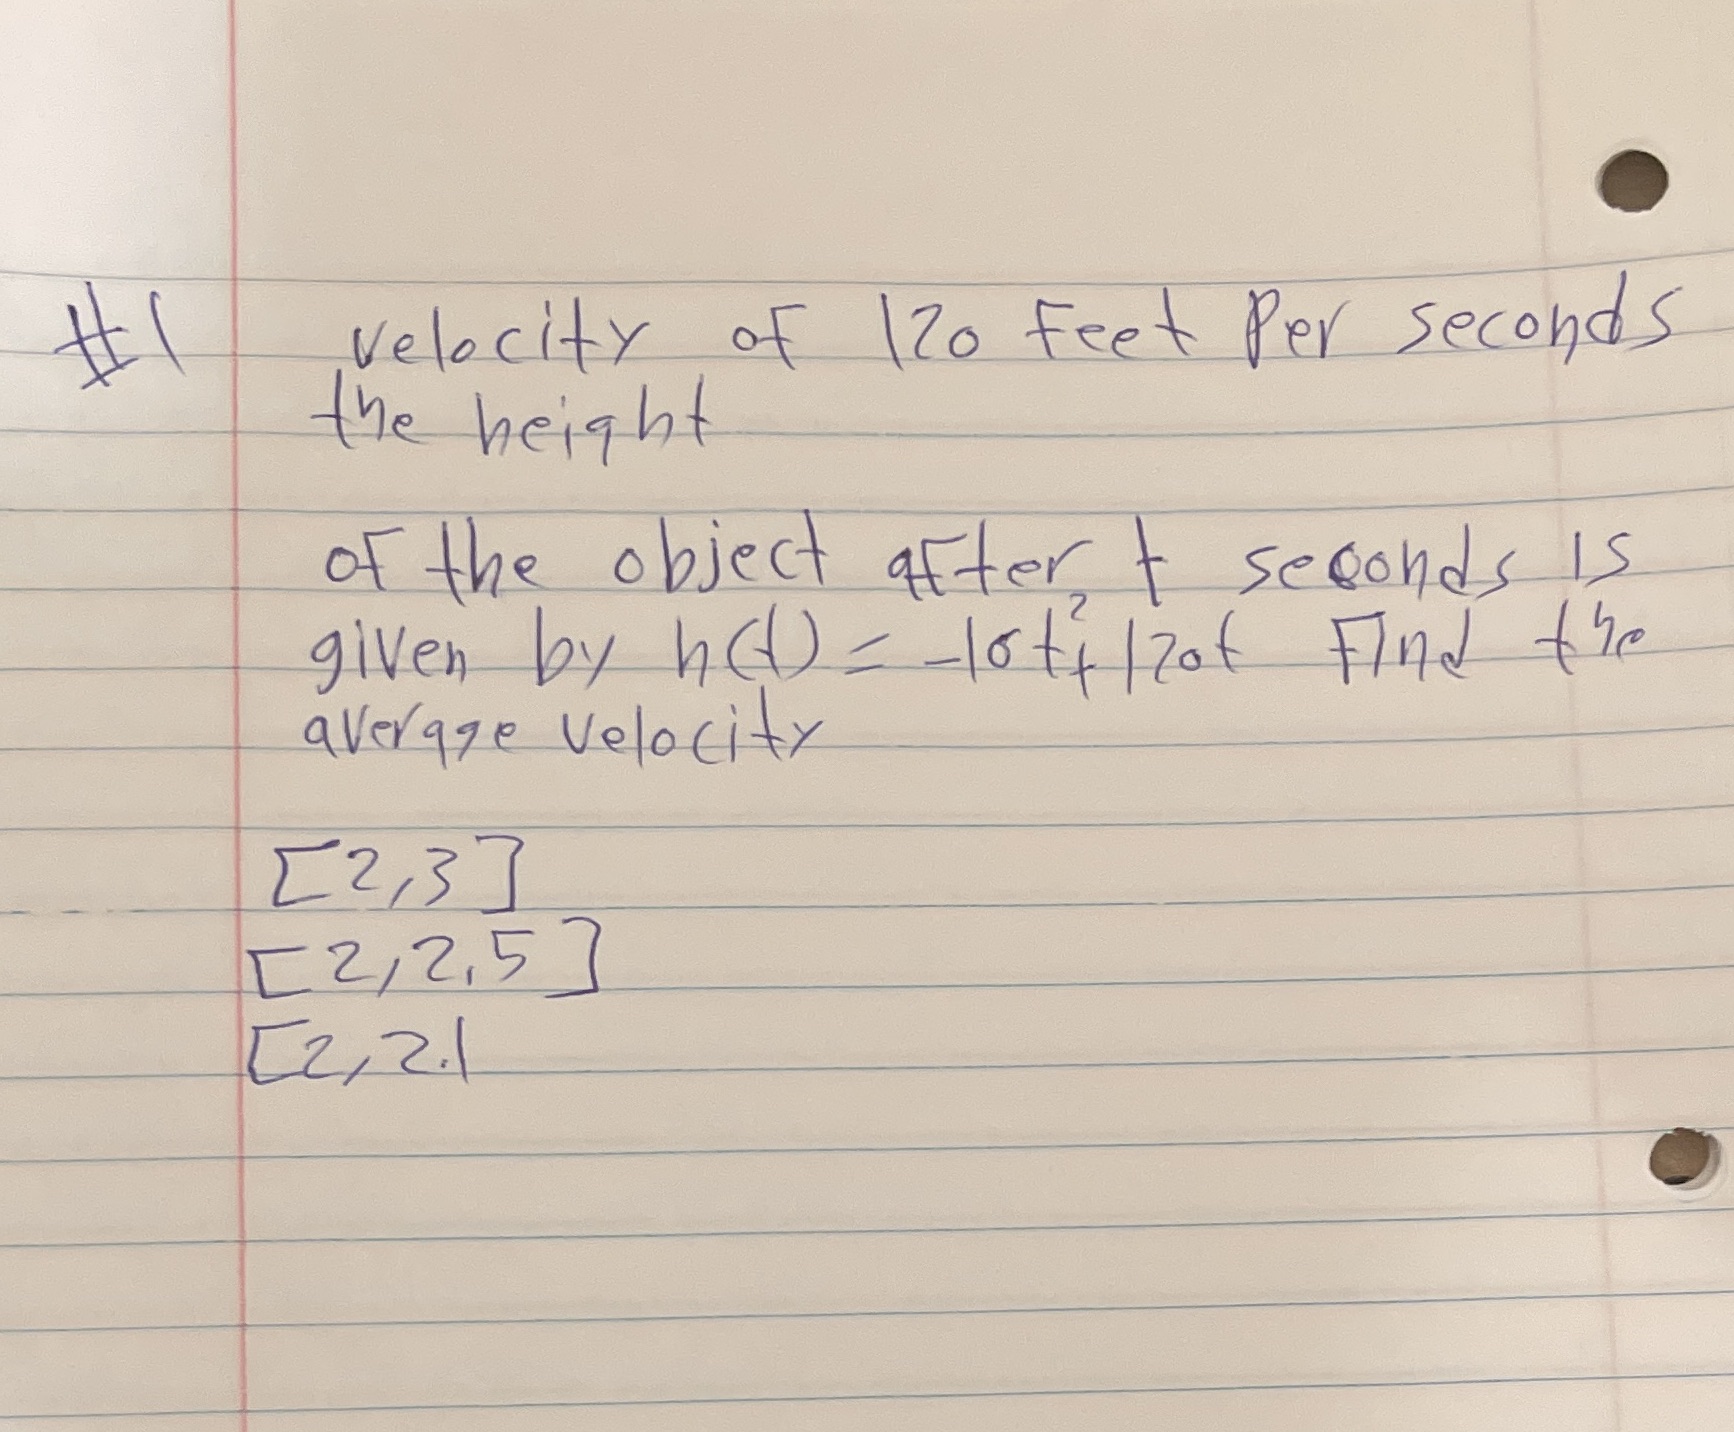 #1 velocity of 120 feet Per seconds
the height
of the object after t seconds is
given by h(t) = -16t²+120t Find the
average velocity
[2,3]
[2,2.5]
[2,2.1